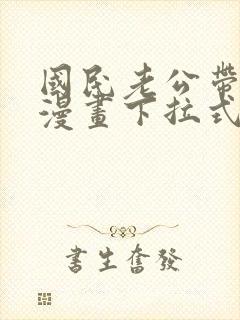 國民老公帶
漫畫下拉式
書生奮發